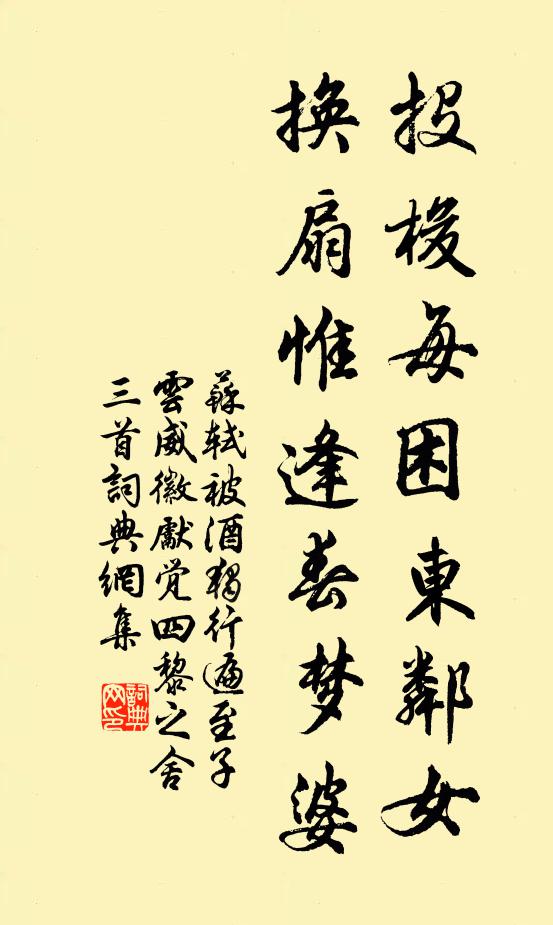 投梭每困東鄰女
換扇惟逢春梦婆
蘇軾被酒獨行遍至子
雲威徽獻觉四黎之舍
三首詞典網集
詞典網印